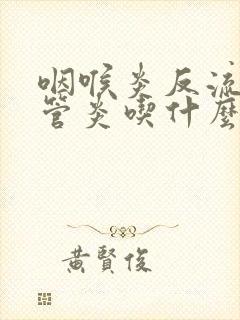 咽喉炎反流
管炎喫什麼
黃賢俊